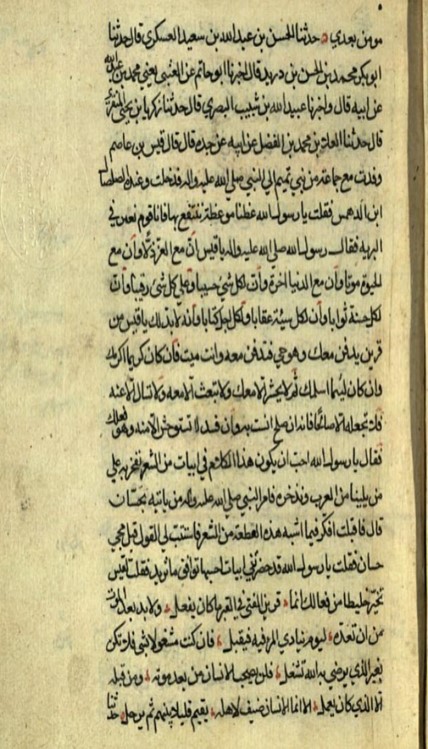 مومن بعدي حدثنا الحسن بن عبدالله بن سعيد العسكري قال حدثنا
ابو بكر محمد بن الحسن بن دريد قال اخبرنا ابو حاتم عن العتبي يعني محمد بن عبدالله
عن ابيه قال واخبرنا عبيد الله بن شبيب البصري قال حدثنا زكريا بن يحيى المنقري
قال حدثنا العلاء بن محمد بن الفضل عن ابيه عن جده قال قال قيس بن عاصم
وفدت مع جماعة من بني تميم الى النبي صلى الله عليه واله فدخلت وعنده الصلصال
ابن الدلهمس فقلت يا رسول الله عظنا موعظة ننتفع بها فانا قوم نعبر في
البريه فقال رسول الله صلى الله عليه واله يا قيس ان مع العز ذلا وان مع
الحيوة موتا وان مع الدنيا اخرة وان لكل شئ حسيبا وعلى كل شئ رقيبا وان
لكل حسنة ثوابا ولكل سيئة عقابا ولكل اجل كتابا وانه لا بد لك يا قيس من
قرين يدفن معك وهو حي وتدفن معه وانت ميت فان كان كريما اكرمك
وان كان لئيما اسلمك ثم لا يحشر الا معك ولا تبعث الا معه ولا تسال الا عنه
فلا تجعله الا صالحا فانه ان صلح انست به وان فسد لا تستوحش الا منه وهو فعلك
فقال يا رسول الله احب ان يكون هذا الكلام في ابيات من الشعر نفخر به على
من يلينا من العرب وندخره فامر النبي صلى الله عليه واله من ياتيه بحسان
قال فاقبلت افكر فيما اشبه هذه العظة من الشعر فاستتب لي القول قبل مجي
حسان فقلت يا رسول الله قد حضرتني ابيات احسبها توافق ما تريد فقلت لقيس
تخير خليطا من فعالك انما قرين الفتى في القبر ما كان يفعل ولا بد بعد الموت
من ان تعده ليوم ينادي المرء فيه فيقبل فان كنت مشغولا بشي فلا تكن
بغير الذي يرضى به الله تشغل فلن يصحب الانسان من بعد موته ومن قبله
الا الذي كان يعمل الا انما الانسان ضيف لاهله يقيم قليلا بينهم ثم يرحل حدثنا